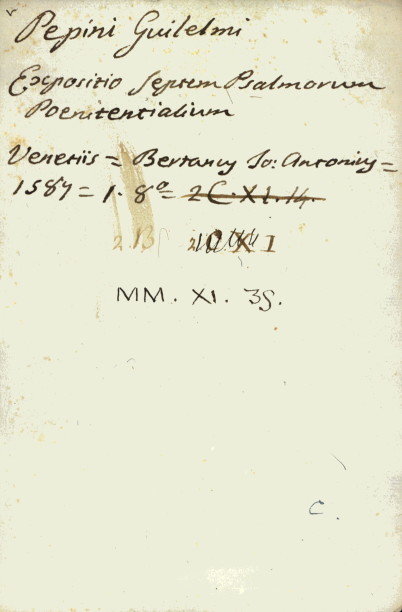 Pepini Guilelmi
Expositio Septem Psalmorum
Poenitentialium
Venetiis = Bertanus Jo: Antonius =
1587 = 1. 8º = 2 C. XI. 14.
2 13
XI
MM. XI. 35.
C.